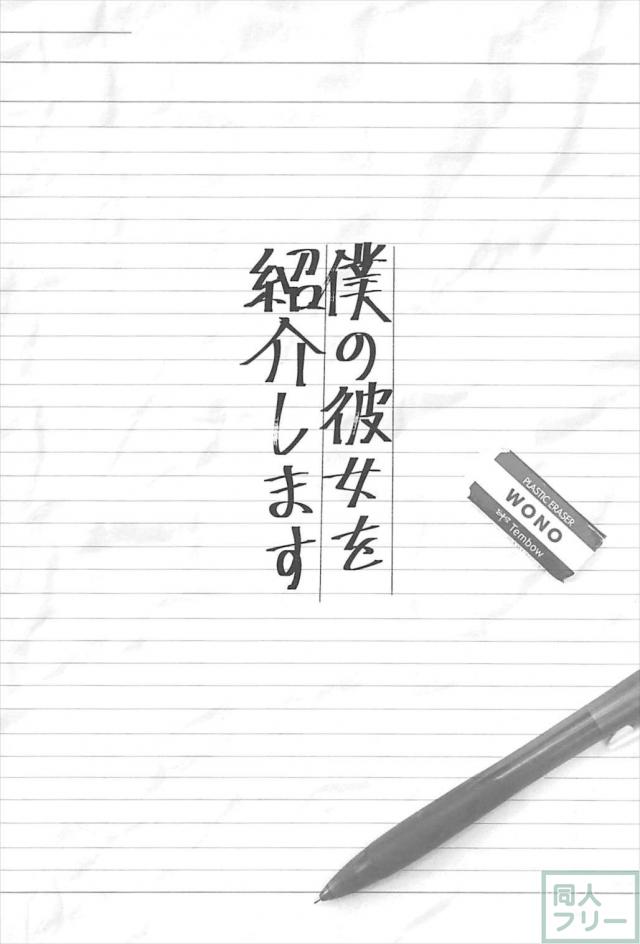 僕の彼女を
紹介します
PLASTIC ERASER
WONO
Tembow
同人
フリー